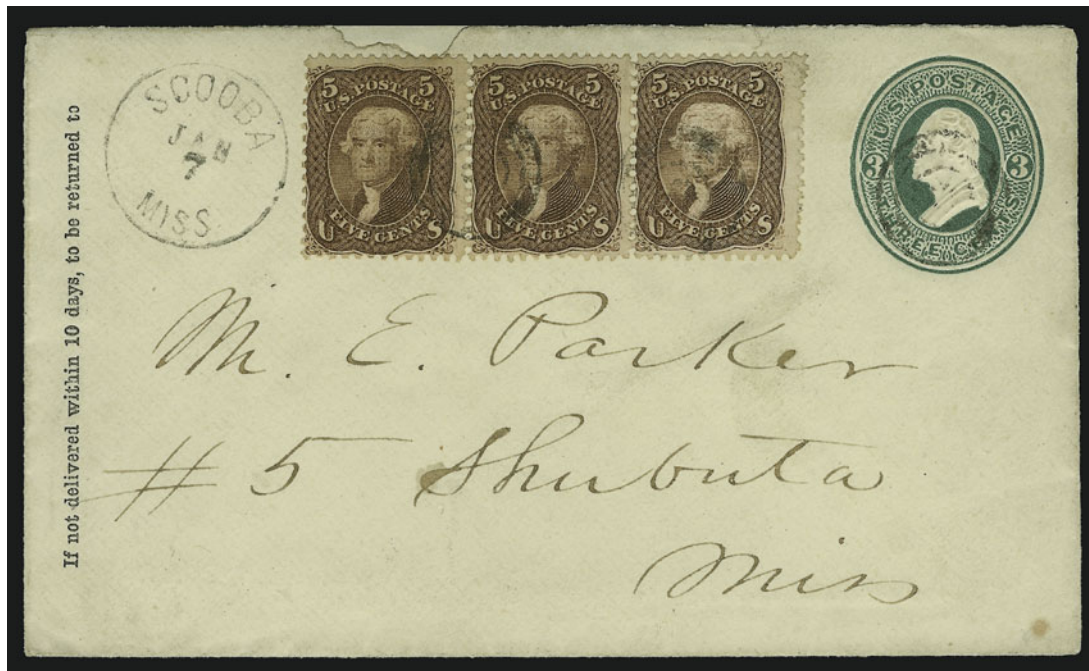 If not delivered within 10 days, to be returned to
SCOOBA
JAN
7
MISS.
5 5
U.S. POSTAGE
FIVE CENTS
U S
5 5
U.S. POSTAGE
FIVE CENTS
U S
5 5
U.S. POSTAGE
FIVE CENTS
U S
U.S. POSTAGE
3 3
THREE CENTS
M. E. Parker
# 5 Shubuta
Miss